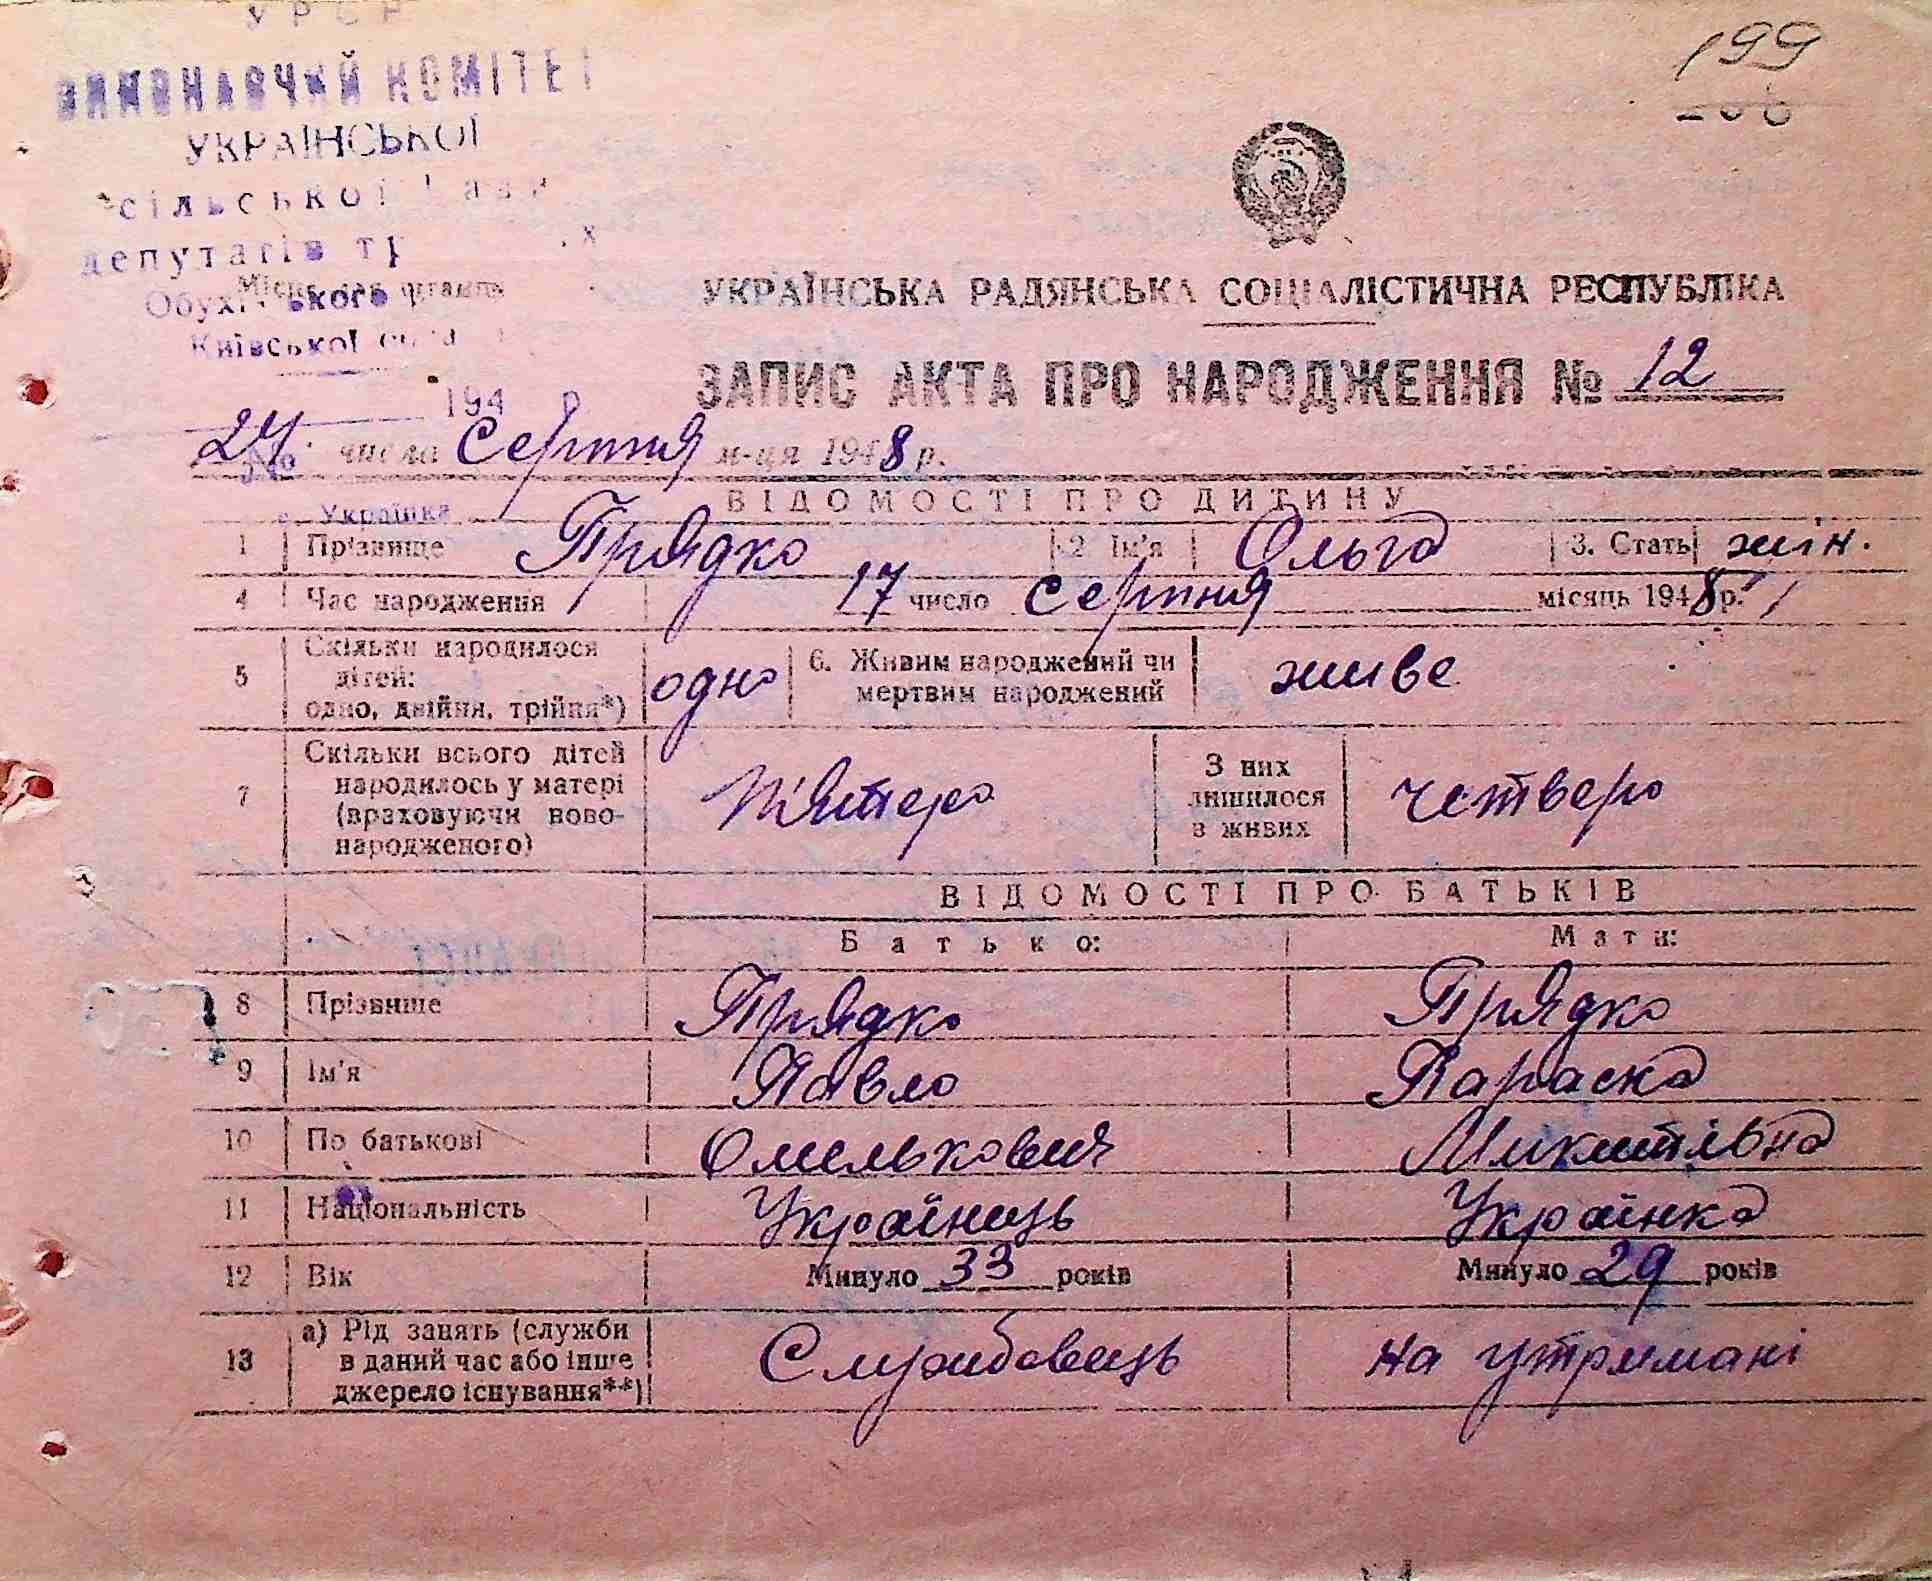 УРСР
ВИКОНАВЧИЙ КОМІТЕТ
УКРАЇНСЬКОЇ
сільської
депутатів
Київської
194 р
199
УКРАЇНСЬКА РАДЯНСЬКА СОЦІАЛІСТИЧНА РЕСПУБЛІКА
ЗАПИС АКТА ПРО НАРОДЖЕННЯ № 12
24 числа Серпня м-ця 1948 р.
ВІДОМОСТІ ПРО ДИТИНУ
с. Українка
1 Прізвище Прядко 2 Ім'я Ольга 3. Стать жін.
4 Час народження 17 число серпня місяць 1948 р.
5 Скільки народилося дітей: одно, двійня, трійня*) одно 6. Живим народжений чи мертвим народжений живе
7 Скільки всього дітей народилось у матері (враховуючи новонародженого) п'ятеро З них лишилося в живих четверо
ВІДОМОСТІ ПРО БАТЬКІВ
Батько: Мати:
8 Прізвище Прядко Прядко
9 Ім'я Павло Параска
10 По батькові Омелькович Микитівна
11 Національність Українець Українка
12 Вік Минуло 33 років Минуло 29 років
13 а) Рід занять (служби в даний час або інше джерело існування**) Службовець на утримані